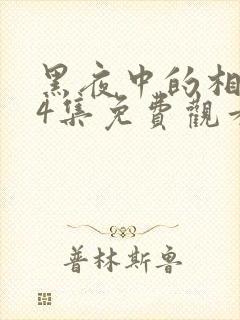 黑夜中的相
4集免費觀看
普林斯鲁